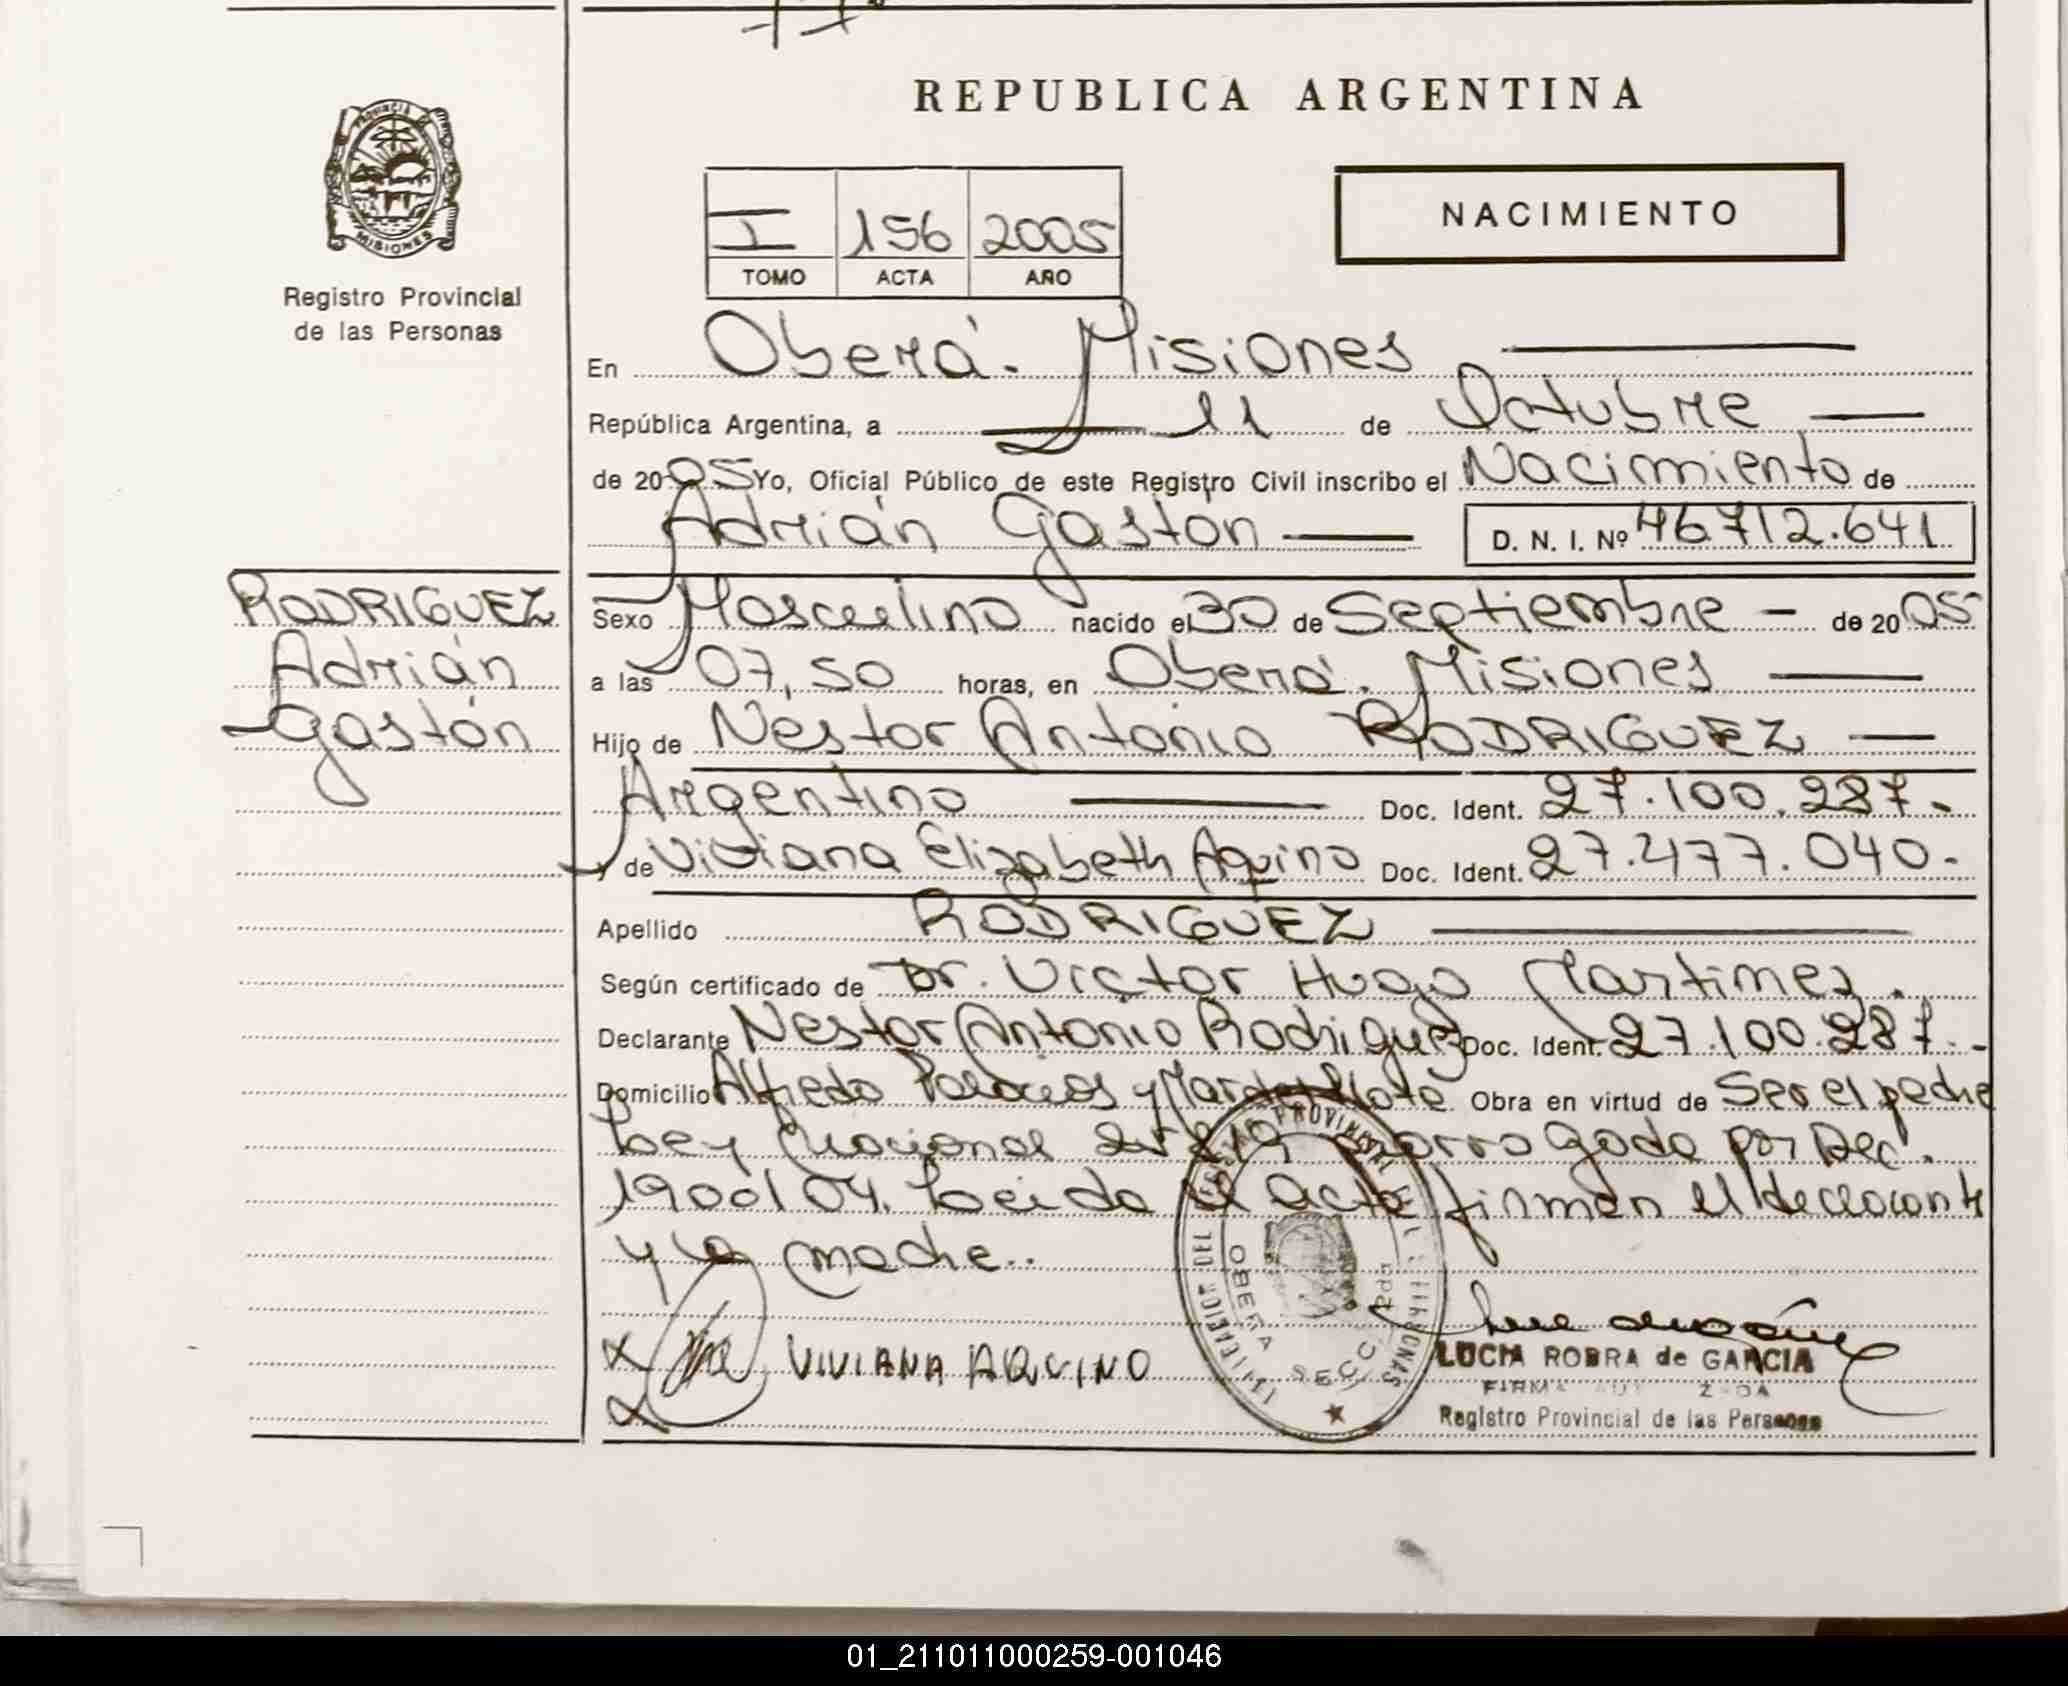 REPUBLICA ARGENTINA
PROVINCIA DE
MISIONES
Registro Provincial
de las Personas
I 156 2005
TOMO ACTA AÑO
NACIMIENTO
En Oberá. Misiones
República Argentina, a 11 de Octubre
de 2005 Yo, Oficial Público de este Registro Civil inscribo el Nacimiento de
Adrián Gastón D. N. I. Nº 46712.641
RODRIGUEZ
Adrián
Gastón
Sexo Masculino nacido el 30 de Septiembre de 2005
a las 07,50 horas, en Oberá. Misiones
Hijo de Néstor Antonio RODRIGUEZ
Argentino Doc. Ident. 27.100.287.
y de Viviana Elizabeth Aquino Doc. Ident. 27.477.040.
Apellido RODRIGUEZ
Según certificado de Dr. Victor Hugo Martinez.
Declarante Nestor Antonio Rodriguez Doc. Ident. 27.100.287.-
Domicilio Alfredo Palacios y Mar del Plata Obra en virtud de Ser el padre
Ley Nacional prorrogada por Dec.
1900/04. Leida el acta firman el declarante
y la madre..
X VIVIANA AQUINO
X
OBERA SECC. 2da
LUCIA ROBRA de GARCIA
FIRMA AUTORIZADA
Registro Provincial de las Personas
01_211011000259-001046